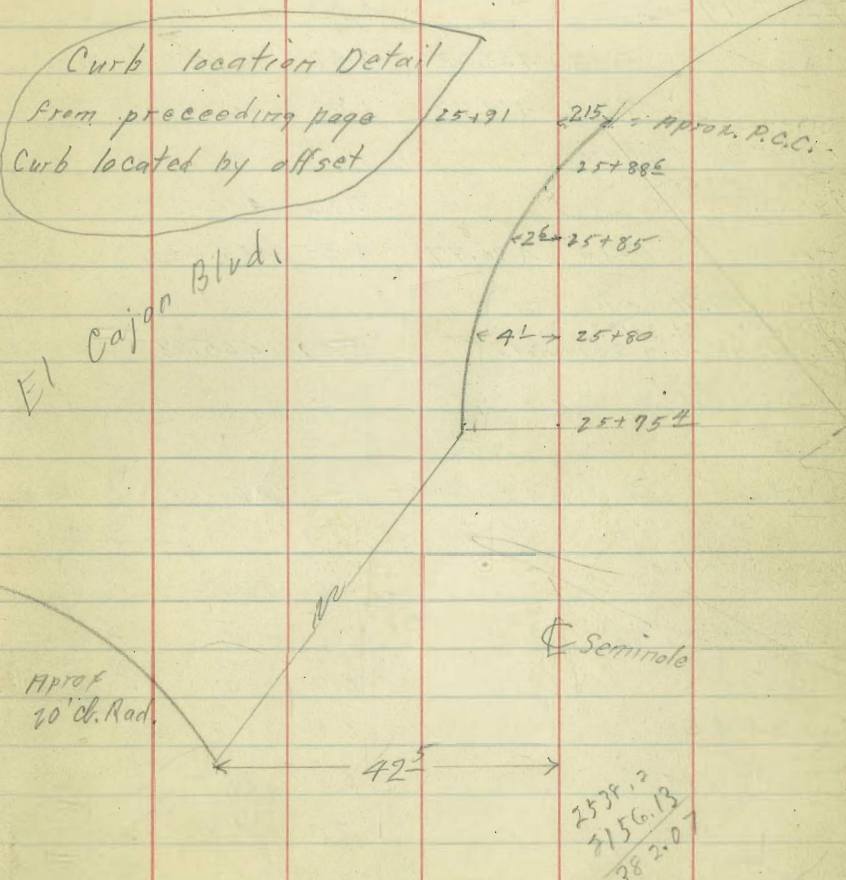 Curb location Detail
from preceeding page
Curb located by offset
25+91
215
= Aprox. P.C.C.
25+88 6
2 6 25+85
4 1 25+80
25+75 4
El Cajon Blvd.
℄ Seminole
Aprox
20' cb. Rad.
42 5
2538.2
2156.13
382.07